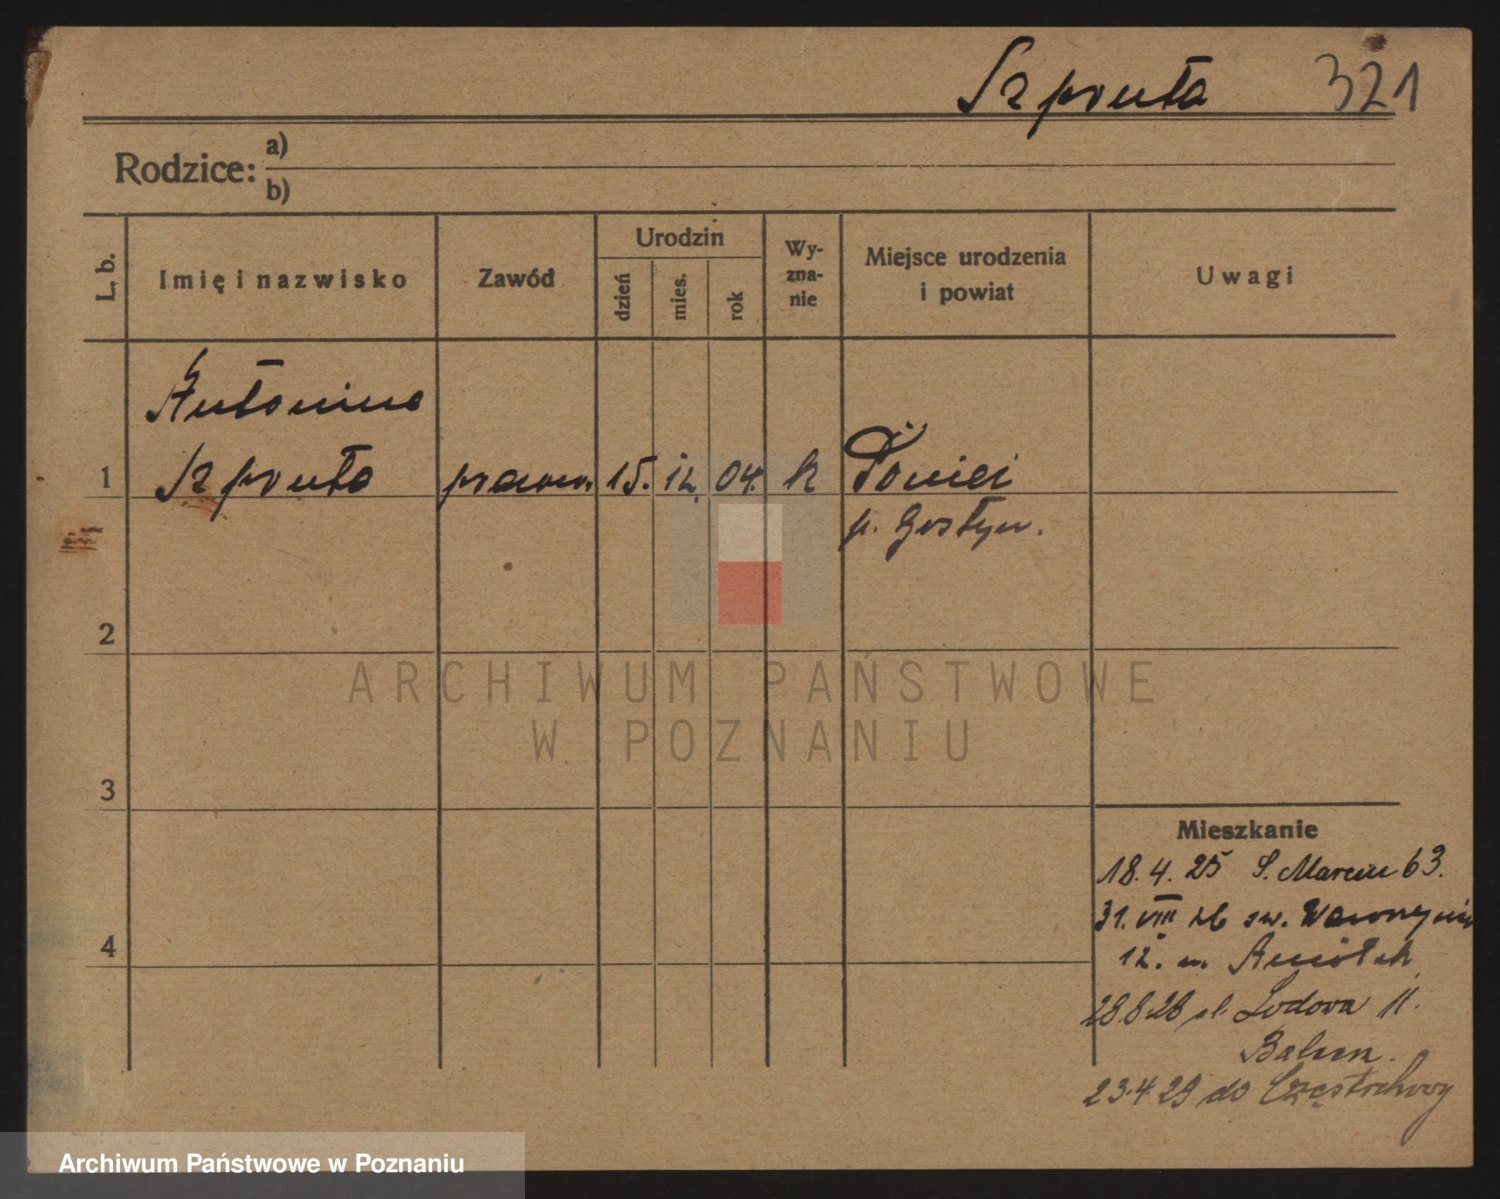 Szpruta 321
Rodzice: a)
b)
L. b.
Imię i nazwisko
Zawód
Urodzin
dzień
mies.
rok
Wy-
zna-
nie
Miejsce urodzenia
i powiat
Uwagi
Antonina
1 Szpruta 15. 12. 04. k
p. Gostyn.
2
3
4
ARCHIWUM PAŃSTWOWE
W POZNANIU
Mieszkanie
18.4.25 S. Marcin 63.
31. VIII 26 św.
12. m.
28.8.28 11.
23.4.29 do Częstochowy
Archiwum Państwowe w Poznaniu